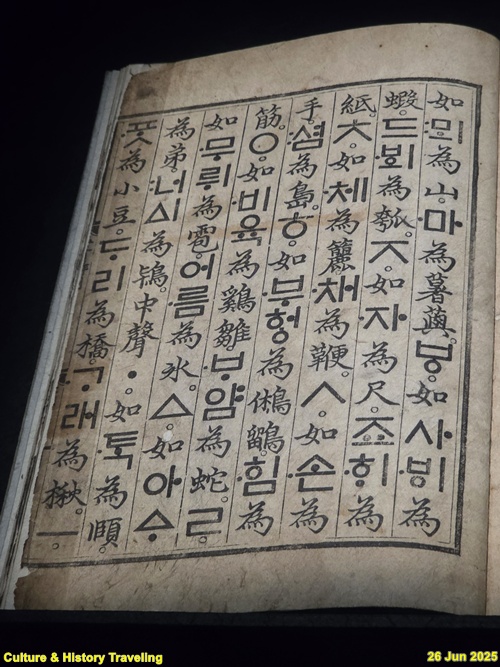 如:뫼為山。·마為薯藇。ㅸ。如사·ᄫᅵ為
蝦。드·ᄫᅴ為瓠。ㅈ。如·자為尺。죠·ᄒᆡ為
紙。ㅊ。如·체為籭。·채為鞭。ㅅ。如·손為
手。:셤為島。ㅎ。如·부ᅘᅥᇰ為鵂鶹。·힘為
筋。ㅇ。如·비육為鷄雛。·ᄇᆞ얌為蛇。ㄹ。
如·무뤼為雹。어·름為氷。ㅿ。如아ᅀᆞ
為弟。:너ᅀᅵ為鴇。中聲ㆍ。如·ᄐᆞᆨ為頤。
·ᄑᆞᆺ為小豆。ᄃᆞ리為橋。·ᄀᆞ래為楸。ㅡ。
Culture & History Traveling
26 Jun 2025